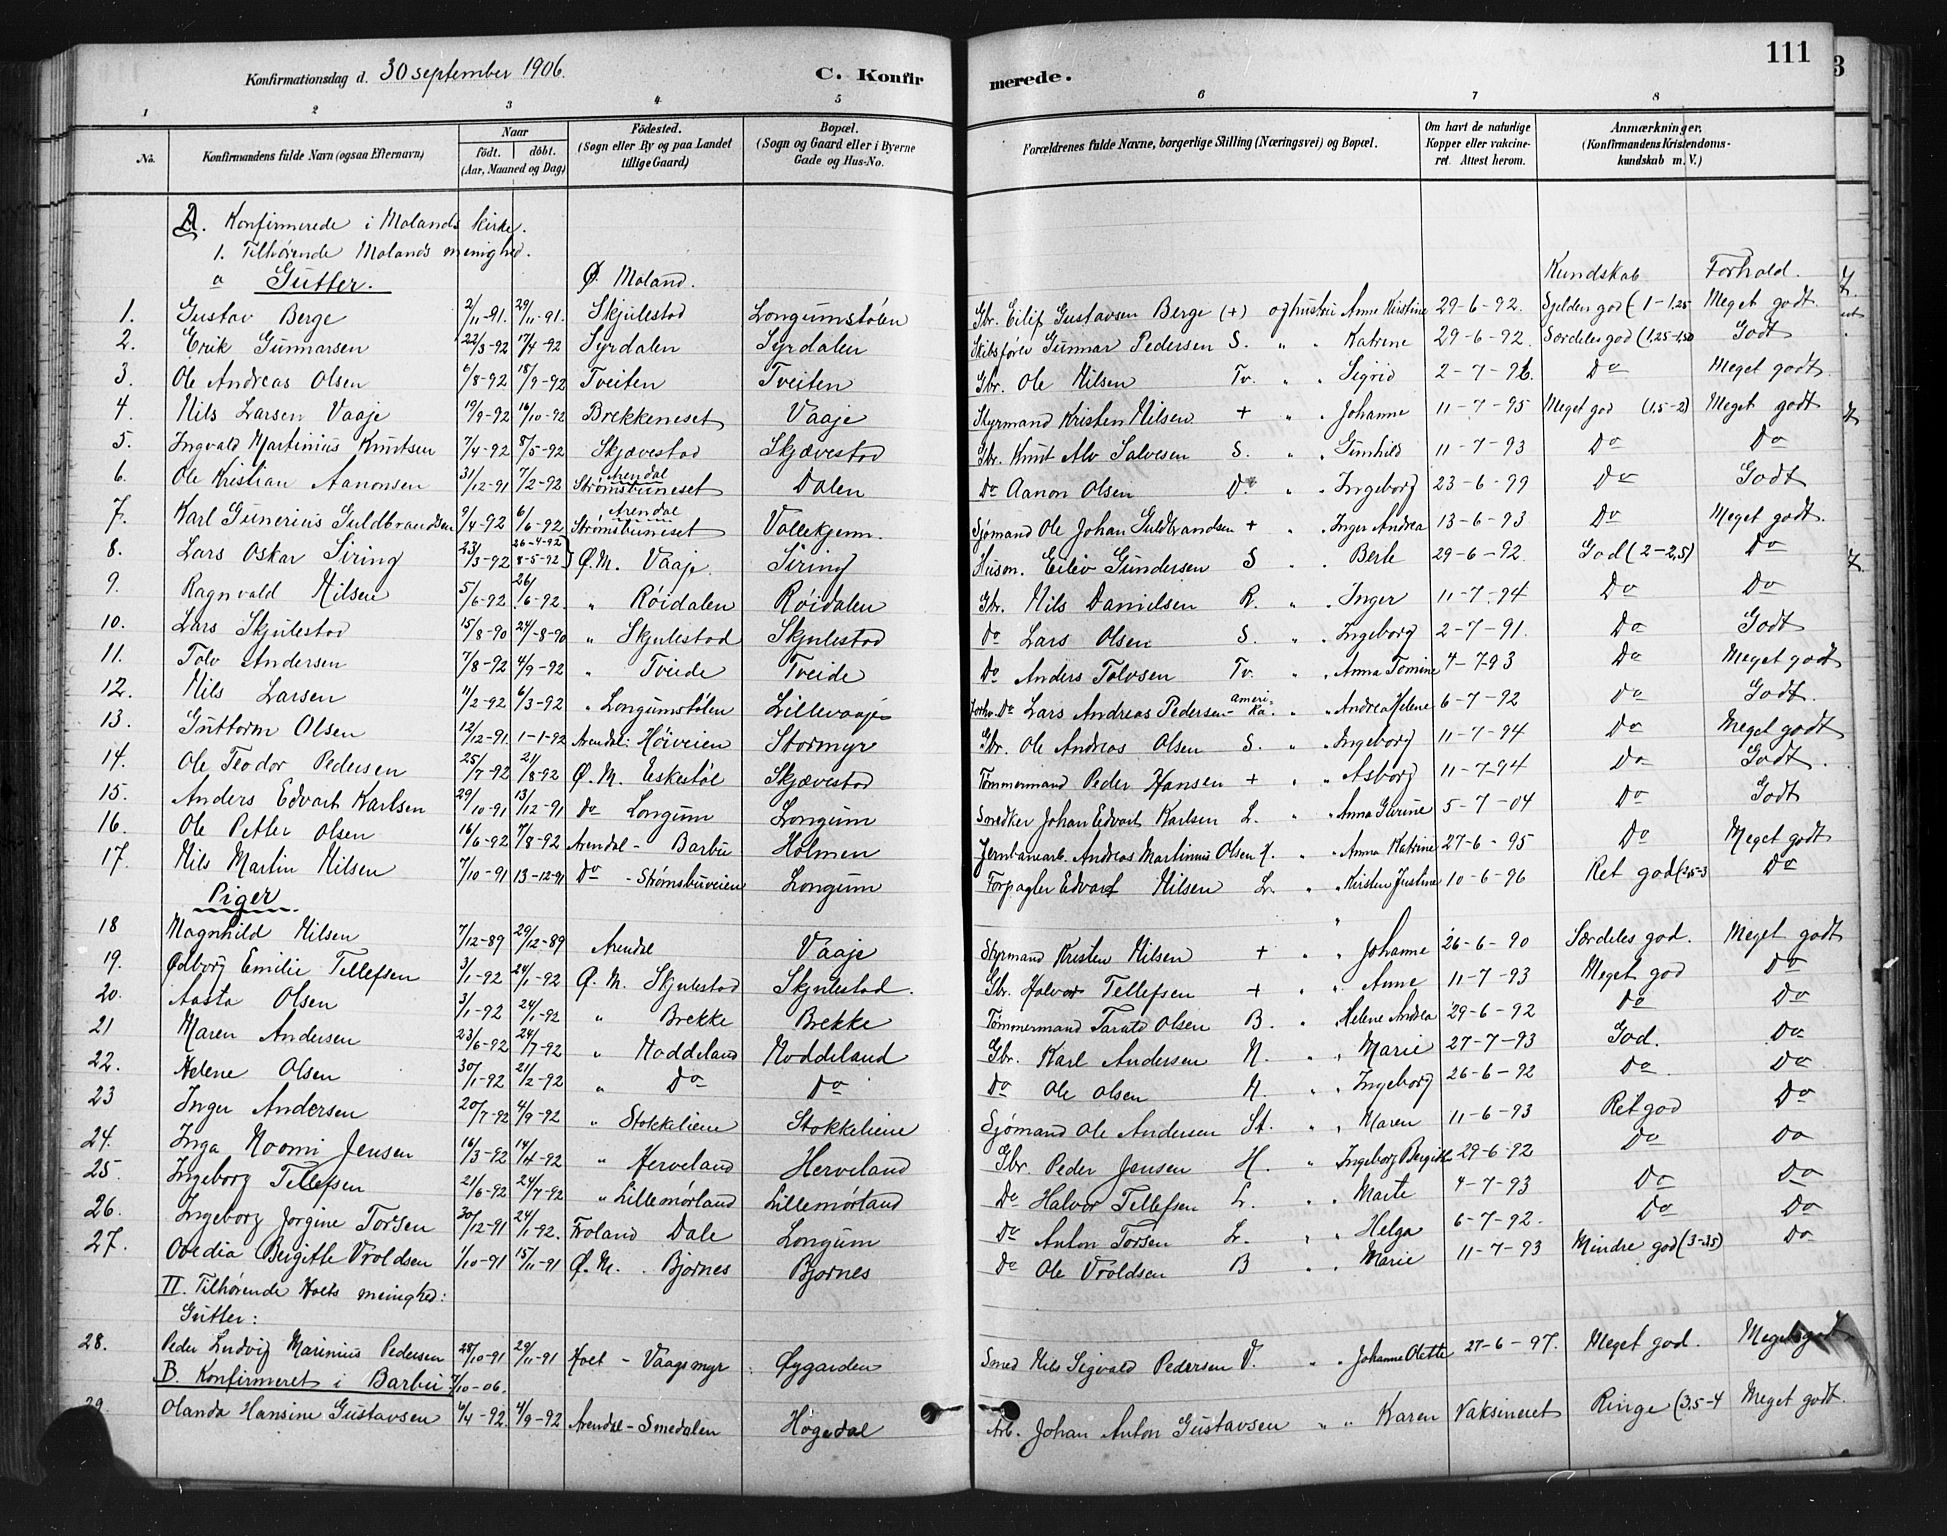 Konfirmationsdag d. 30 september 1906. C. Konfirmerede. 111
1 2 3 4 5 6 7 8
No. Konfirmandens fulde Navn (ogsaa Efternavn) Naar født. døbt. (Aar, Maaned og Dag) Fødested. (Sogn eller By og paa Landet tillige Gaard) Bopæl. (Sogn og Gaard eller i Byerne Gade og Hus-No. Forældrenes fulde Navne, borgerlige Stilling (Næringsvei) og Bopæl. Om havt de naturlige Kopper eller vakcineret. Attest herom. Anmærkninger. (Konfirmandens Kristendomskundskab m. V.)
A. Konfirmerede i Molands kirke.
1. Tilhørende Molands menighed.
a Gutter. Ø. Moland. Kundskab Forhold.
1. Gustav Berge 2/11-91. 29/11-91. Skjulestad Longumstølen Gbr. Eilif Gustavsen Berge (+) og hustru Anne Kirstine 29-6-92. Sjelden god (1-1,25 Meget godt
2. Erik Gunnarsen 22/3-92 17/4-92 Syrdalen Syrdalen Skibsfører Gunnar Pedersen S. " " Katrine 29-6-92. Særdeles god (1,25-1,50 Godt
3. Ole Andreas Olsen 6/8-92 18/9-92 Tveiten Tveiten Gbr. Ole Nilsen Tv. " " Sigrid 2-7-96. Do Meget godt.
4. Nils Larsen Vaaje 19/9-92 16/10-92 Brekkeneset Vaaje Styrmand Kristen Nilsen + " " Johanne 11-7-95 Meget god (1,5-2) Meget godt
5. Ingvald Martinius Knutsen 7/4-92 8/5-92 Skjævestad Skjævestad Gbr. Knut Alv Salvesen S. " " Gunhild 11-7-93 Do Do
6. Ole Kristian Aanonsen 31/12-91 7/2-92 Arendal Strømsbuneset Dalen Do Aanon Olsen D. " " Ingeborg 23-6-99 Do Godt
7. Karl Gunerius Guldbrandsen 9/4-92 6/6-92 Arendal Strømsbuneset Vollekjenn. Sjømand Ole Johan Guldbrandsen + " Inger Andrea 13-6-93 Do Meget godt.
8. Lars Oskar Siring 23/3-92 26-4-92 8-5-92 } Ø. M. Vaaje. Siring Husm. Eilev Gundersen S " " Berte 29-6-92. God (2-2,5) Do
9. Ragnvald Nilsen 5/6-92 26/6-92. " Røidalen Røidalen Gbr. Nils Danielsen R. " " Inger 11-7-94 Do Do
10. Lars Skjulestad 15/8-90 24/-8-90 " Skjulestad Skjulestad Do Lars Olsen S. " " Ingeborg 2-7-91. Do Godt
11. Tolv Andersen 7/8-92 4/9-92 " Tveide Tveide Do Anders Tolvsen Tv. " " Anna Tomine 4-7-93 Do Meget godt
12. Nils Larsen 11/2-92 6/3-92 " Longumstølen Lillevaaje Forhv. Do Lars Andreas Pedersen - amerika. " " Andrea Helene 6-7-92 Do Godt.
13. Guttorm Olsen 12/12-91. 1-1-92 Arendal: Høiveien Stormyr Gbr. Ole Andreas Olsen S. " " Ingeborg 11-7-94 Do Meget godt
14. Ole Teodor Pedersen 25/7-92 21/8-92 Ø. M. Eskestøl Skjævestad Tømmermand Peder Hansen + " " Asborg 11-7-94 Do Godt.
15. Anders Edvart Karlsen 29/10-91 13/12-91 Do Longum Longum Snedker Johan Edvart Karlsen L. " " Anna Gurine 5-7-04 Do Godt
16. Ole Petter Olsen 16/6-92 7/8-92 Arendal - Barbu Holmen Jernbanearb. Andreas Martinius Olsen H. " " Anna Katrine 27-6-95 Do Meget godt
17. Nils Martin Nilsen 7/10-91 13-12-91 Do - Strømsbuveien Longum Forpagter Edvart Nilsen L. " " Kirsten Justine 10-6-96 Ret god (2,5-3 Do
Piger.
18 Magnhild Nilsen 7/12-89 29/12-89 Arendal Vaaje Styrmand Kristen Nilsen + " " Johanne 26-6-90 Særdeles god. Meget godt
19. Ødborg Emilie Tellefsen 3/1-92 24/1-92 Ø. M. Skjulestad Skjulestad. Gbr. Halvor Tellefsen + " " Anne 11-7-93 Meget god Do
20. Aasta Olsen 3/1-92 24/1-92 " Brekke Brekke Tømmermand Tarald Olsen B. " Helene Andrea 29-6-92 Do Do
21 Maren Andersen 23/6-92 24/7-92 " Noddeland Noddeland Gbr. Karl Andersen N. " " Marie 27-7-93 God. Do
22. Helene Olsen 30/1-92 21/2-92 " Do Do Do Ole Olsen N. " " Ingeborg 26-6-92 Do. Do
23 Inger Andersen 20/7-92 4/9-92 " Stokkeliene Stokkeliene Sjømand Ole Andersen St. " " Maren 11-6-93 Ret god Do
24. Inga Noomi Jensen 16/3-92 14/4-92 " Herveland Herveland Gbr. Peder Jensen H. " Ingeborg Bergitte 29-6-92 Do Do
25. Ingeborg Tellefsen 21/6-92 24/7-92 " Lillemørland Lillemørland Do Halvor Tellefsen L. " " Marte 4-7-93 Do Do
26. Ingeborg Jorgine Torsen 30/12-91 24/1-92. Froland Dale Longum Do Anton Torsen L. " " Helga 6-7-92. Do Do
27. Ovedia Bergitte Vroldsen 1/10-91 15/11-91 Ø. M. . Bjornes Bjornes Do Ole Vroldsen B " " Marie 11-7-93 Mindre god (3-3,5) Do
II. Tilhørende Holts menighed:
Gutter:
28. Peder Ludvig Marinius Pedersen 28/10-91 29/11-91 Holt - Vaagsmyr Øygarden Smed Nils Sigvald Pedersen V. " " Johanne Olette 27-6-97. Meget god. Meget godt
B. Konfirmeret i Barbu 7/10-06.
29 Olanda Hansine Gustavsen 6/4-92. 4/9-92 Arendal - Smedalen Høgedal Arb. Johan Anton Gustavsen " " Karen Vaksineret Ringe (3,5-4 Meget godt.